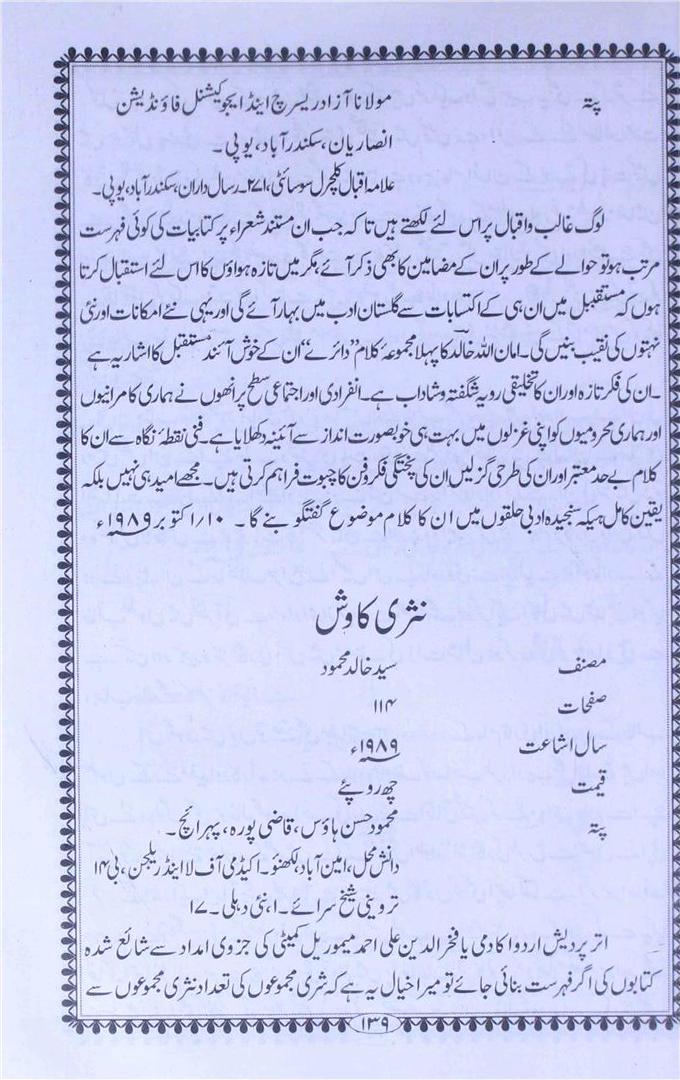 پتہ مولانا آزاد ریسرچ اینڈ ایجوکیشنل فاؤنڈیشن
انصاریان، سکندرآباد، یوپی۔
علامہ اقبال کلچرل سوسائٹی، ۲۷۱۔رسال داران، سکندرآباد، یوپی۔
لوگ غالب و اقبال پر اس لئے لکھتے ہیں تا کہ جب ان مستند شعراء پر کتابیات کی کوئی فہرست
مرتب ہو تو حوالے کے طور پر ان کے مضامین کا بھی ذکر آئے، مگر میں تازہ ہواؤں کا اس لئے استقبال کرتا
ہوں کہ مستقبل میں ان ہی کے اکتسابات سے گلستان ادب میں بہار آئے گی اور یہی نئے امکانات اور نئی
نہتوں کی نقیب بنیں گی۔ امان اللہ خالد کا پہلا مجموعۂ کلام ”دائرے“ ان کے خوش آئند مستقبل کا اشاریہ ہے
۔ان کی فکر تازہ اور ان کا تخلیقی رویہ شگفتہ و شاداب ہے۔ انفرادی اور اجتماعی سطح پر انھوں نے ہماری کامرانیوں
اور ہماری محرومیوں کو اپنی غزلوں میں بہت ہی خوبصورت انداز سے آئینہ دکھلایا ہے۔ فنی نقطۂ نگاہ سے ان کا
کلام بے حد معتبر اور ان کی طرحی گزلیں ان کی پختگی فکر و فن کا چبوت فراہم کرتی ہیں۔ مجھے امید ہی نہیں بلکہ
یقین کامل ہیکہ سنجیدہ ادبی حلقوں میں ان کا کلام موضوع گفتگو بنے گا۔ ۱۰/اکتوبر ۱۹۸۹ء
نثری کاوش
مصنف سید خالد محمود
صفحات ۱۱۴
سال اشاعت ۱۹۸۹ء
قیمت چھ روپئے
پتہ محمود حسن ہاؤس، قاضی پورہ، بہرائچ۔
دانش محل، امین آباد، لکھنؤ۔ اکیڈمی آف لا اینڈ ریلجن، بی ۱۴
تروینی شیخ سرائے۔ ا نئی دہلی۔ ۱۷
اتر پردیش اردو اکادمی یا فخر الدین علی احمد میموریل کمیٹی کی جزوی امداد سے شائع شدہ
کتابوں کی اگر فہرست بنائی جائے تو میرا خیال یہ ہے کہ شری مجموعوں کی تعداد نثری مجموعوں سے
۱۳۹